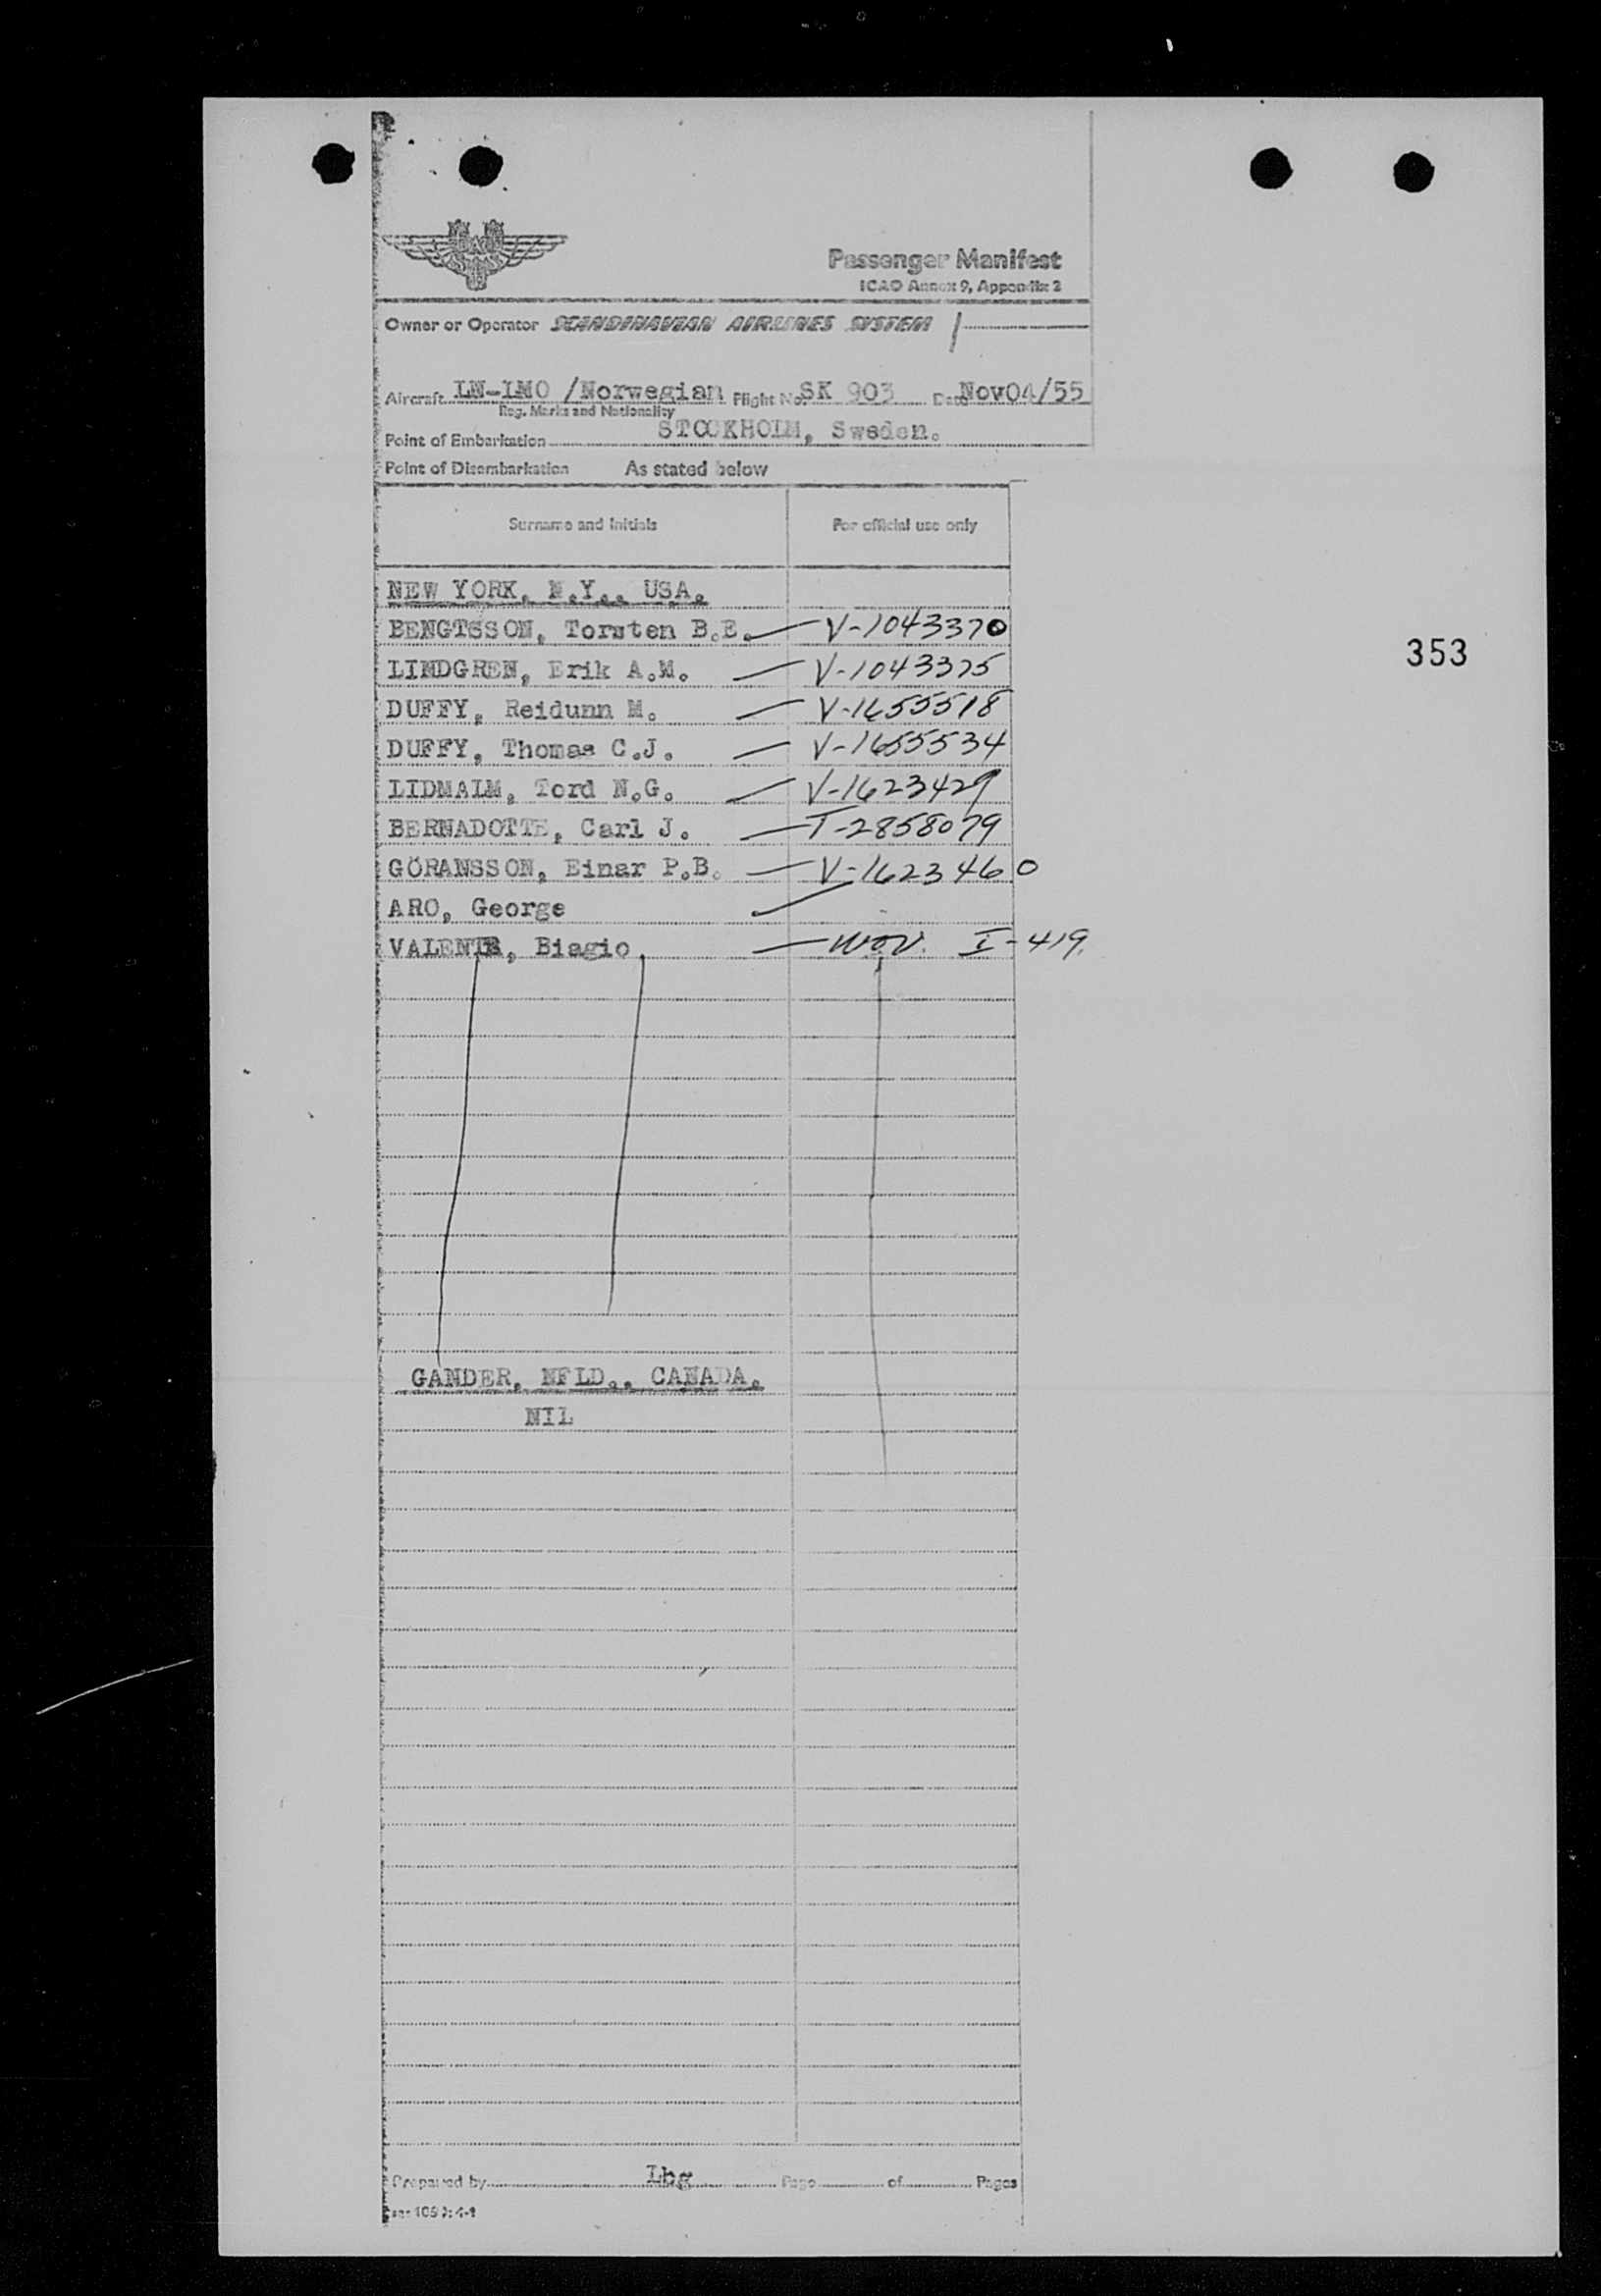 SAS
Passenger Manifest
ICAO Annex 9, Appendix 2
Owner or Operator SCANDINAVIAN AIRLINES SYSTEM
Aircraft LN-LMO /Norwegian Flight No. SK 903 Date Nov04/55
Reg. Marks and Nationality
Point of Embarkation STOCKHOLM, Sweden.
Point of Disembarkation As stated below
Surname and Initials For official use only
NEW YORK, N.Y., USA.
BENGTSSON, Torsten B.E. V-1043370
LINDGREN, Erik A.M. V-1043375
353
DUFFY, Reidunn M. V-1655518
DUFFY, Thomas C.J. V-1655534
LIDMALM, Tord N.G. V-1623429
BERNADOTTE, Carl J. T-2858079
GÖRANSSON, Einar P.B. V-1623460
ARO, George
VALENTE, Biagio I-419.
GANDER, NFLD., CANADA.
NIL
Prepared by Lbg Page of Pages